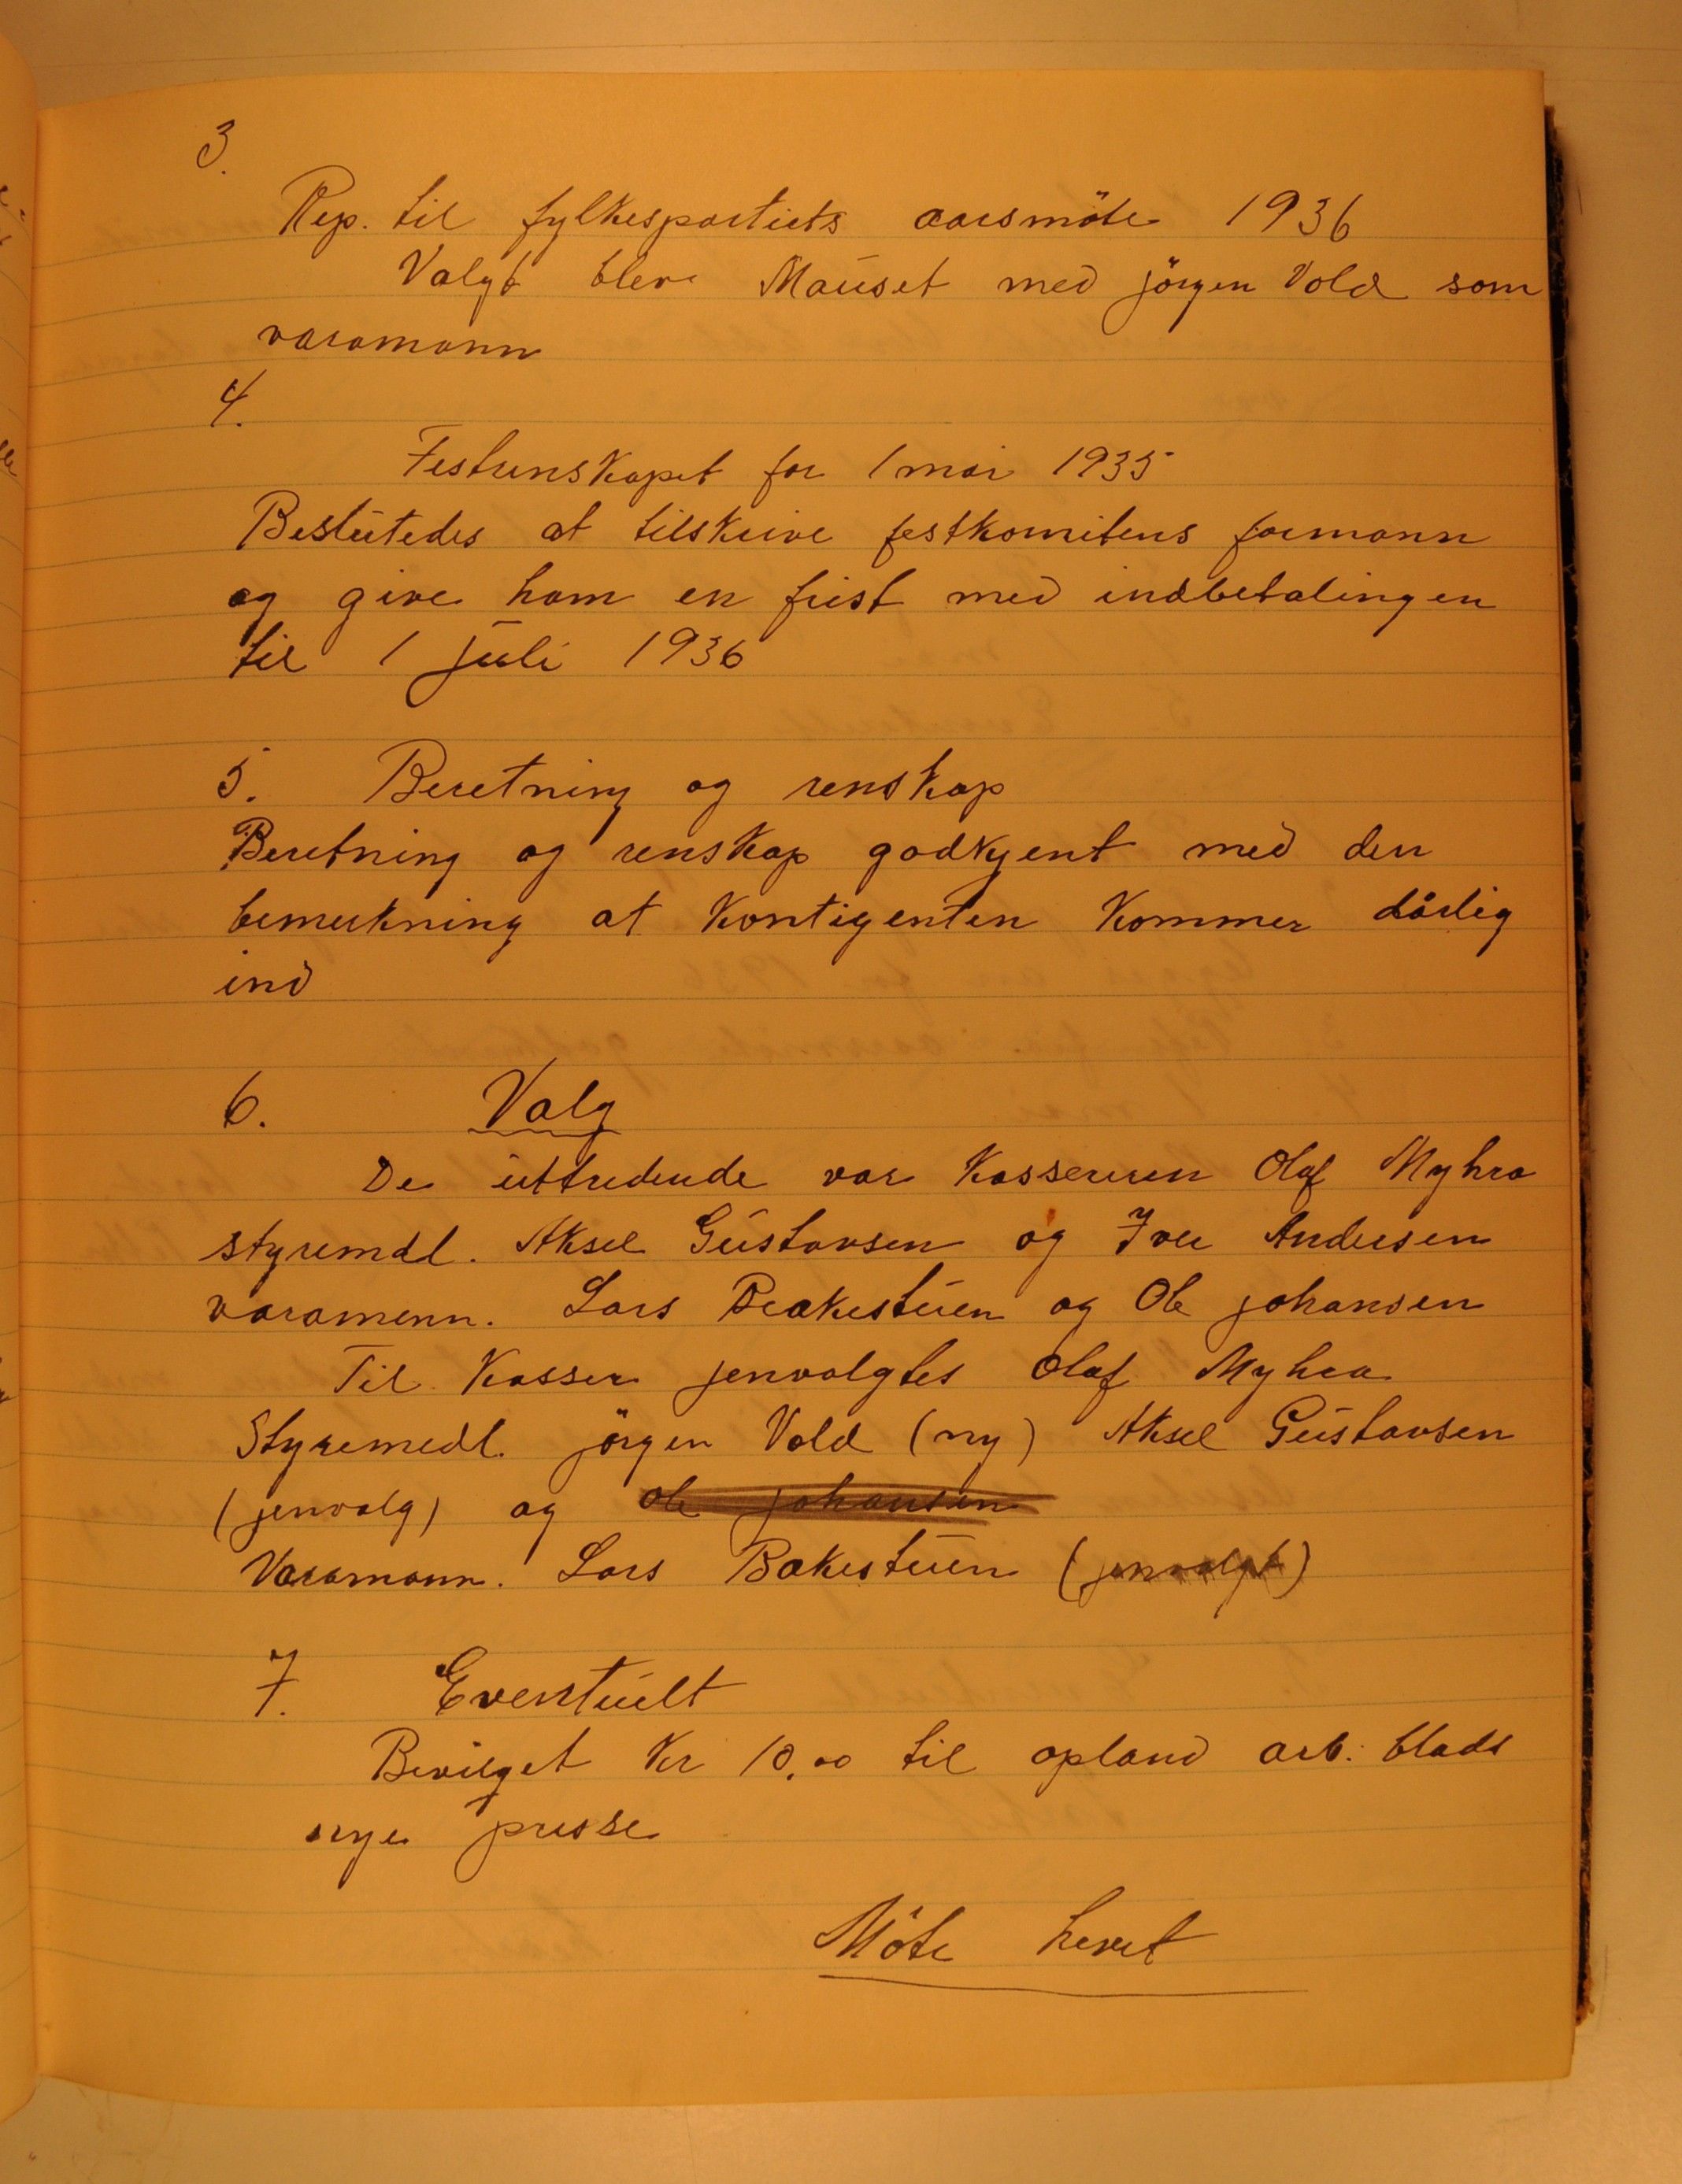 3.
Rep. til fylkespartiets aarsmöte 1936
Valgt blev Mauset med jörgen Vold som
varamann
4.
Festrenskapet for 1 mai 1935
Beslutedes at tilskrive festkomitens formann
og give ham en frist med indbetalingen
til 1 juli 1936
5. Beretning og renskap
Beretning og renskap godkjent med den
bemerkning at Kontigenten Kommer dårlig
ind
6. Valg
De uttredende var Kassereren Olaf Myhra
styremdl. Aksel Gustavsen og Iver Andersen
varamenn. Lars Brakestuen og Ole johansen
Til Kasser jenvalgtes Olaf Myhra
Styremedl. jörgen Vold (ny) Aksel Gustavsen
(jenvalg) og Ole johansen
Varamann. Lars Bakestuen (jenvalgt)
7. Eventuelt
Bevilget Kr 10.00 til opland arb. blads
nye presse
Möte hevet